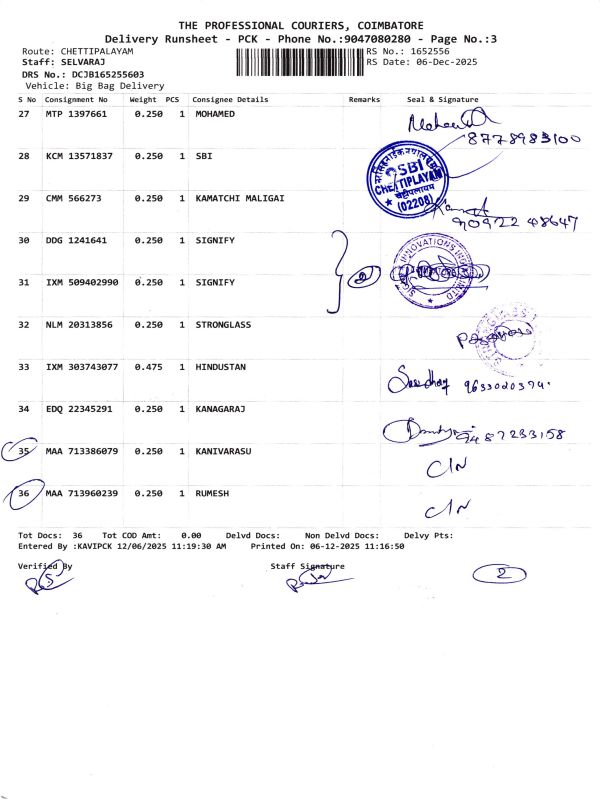 THE PROFESSIONAL COURIERS, COIMBATORE
Delivery Runsheet - PCK - Phone No.:9047080280 - Page No.:3
Route: CHETTIPALAYAM RS No.: 1652556
Staff: SELVARAJ RS Date: 06-Dec-2025
DRS No.: DCJB165255603
Vehicle: Big Bag Delivery
S No Consignment No Weight PCS Consignee Details Remarks Seal & Signature
27 MTP 1397661 0.250 1 MOHAMED
8778983100
28 KCM 13571837 0.250 1 SBI
SBI
CHETTIPLAYAM
(02208)
29 CMM 566273 0.250 1 KAMATCHI MALIGAI
90922 48647
30 DDG 1241641 0.250 1 SIGNIFY
31 IXM 509402990 0.250 1 SIGNIFY
2
SIGNIFY INNOVATIONS INDIA LIMITED
32 NLM 20313856 0.250 1 STRONGLASS
33 IXM 303743077 0.475 1 HINDUSTAN
34 EDQ 22345291 0.250 1 KANAGARAJ
9487233158
35 MAA 713386079 0.250 1 KANIVARASU
C/N
36 MAA 713960239 0.250 1 RUMESH
C/N
Tot Docs: 36 Tot COD Amt: 0.00 Delvd Docs: Non Delvd Docs: Delvy Pts:
Entered By :KAVIPCK 12/06/2025 11:19:30 AM Printed On: 06-12-2025 11:16:50
Verified By Staff Signature
2